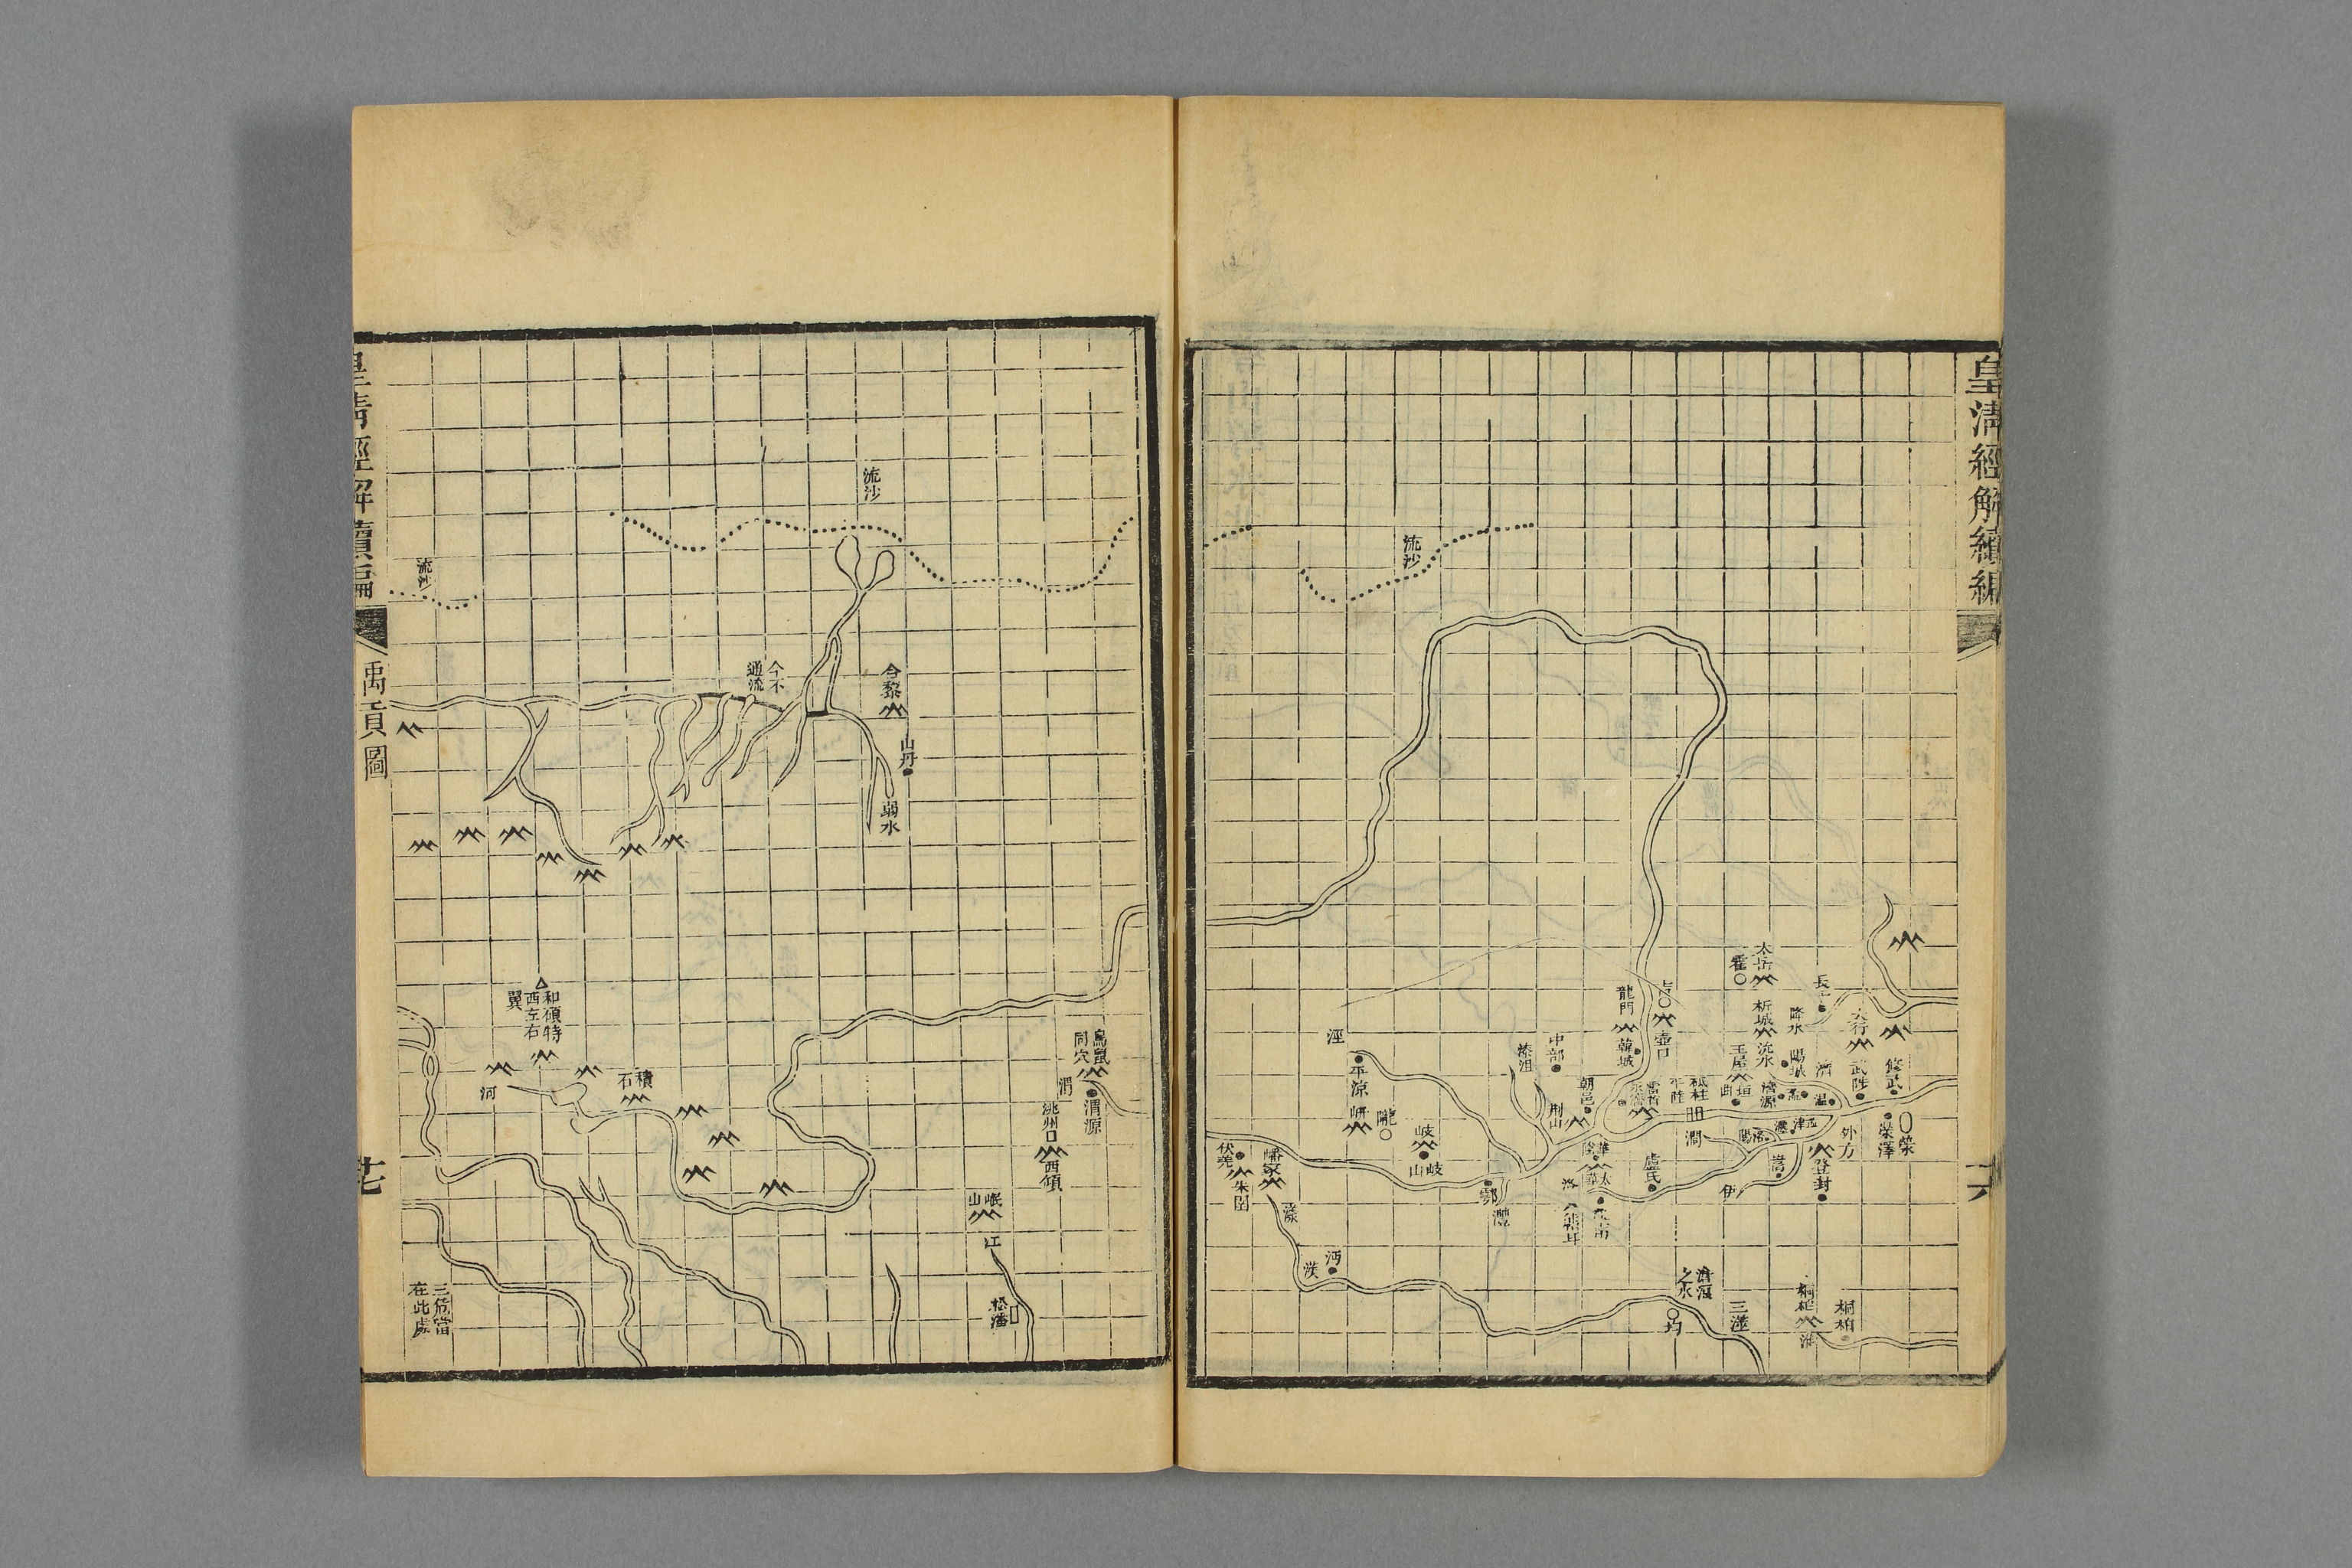 皇清經解續編
流沙
太岳
霍
析城
長子
降水
太行
龍門
壺口
韓城
沇水
王屋
陽城
濟
武陟
修武
涇
平涼
岍
隴
中部
漆沮
朝邑
荊山
雷首
砥柱
平陸
垣曲
濟源
孟
溫
岐
岐山
伏羌
朱圉
嶓冢
漾
鄠
灃
華陰
太華
洛
盧氏
澗
洛陽
瀍
孟津
嵩
伊
外方
登封
滎澤
滎
沔
漢
滄浪之水
均
三澨
桐柏
淮
桐柏
流沙
今不通流
合黎
山丹
弱水
鳥鼠同穴
渭
渭源
洮州
西傾
岷山
江
松潘
和碩特西左右翼
積石
河
三危當在此處
流沙
皇清經解續編
禹貢圖